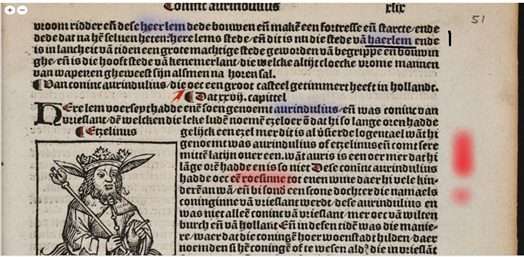 Coninc aurindulius xlix
51
vroom ridder eñ dese heerlem dede bouwen eñ makē een fortresse eñ starcte/ ende
dede dat na hē selven heten: here lems stede. eñ dit is nu die stede vā haerlem ende
is in lancheit vā tiden een grote machtige stede geworden vā begrippe eñ bouwin
ghe. eñ is die hooft stede vā kenemerlant. die welcke altijt cloecke vrome mannen
van wapenen gheweest sijn alsmen na horen sal.
Van coninc aurindulius. die oec een groot casteel getimmert heeft in hollandt.
Dat xxij. capittel
HEre lem voerseyt hadde enē soen genoemt aurindulius/ eñ was coninc van
vrieslant. dē welcken die leke ludē noemē ezeloer ō dat hi so lange oren hadde
Ezelinus
gelijck een ezel mer dit is al versierde logentael wāt hi
genoemt was aurindulius of ezelinus eñ comt sere
mittē latijn over een. wāt auris is een oer mer dat hi
lāge orē hadde en is so niet Dese coninc aurindulius
hadde oec ee roesinne tot eenen wive daer hi vele kin
derē an wā. eñ bi sond een scone dochter die namaels
coninginne vā vrieslant wert. dese aurindulius en
was niet alleē conīnt vā vrieslant/ mer oec vā wilten
burch eñ vā hollant Eñ in desen tidē was die manie-
re/ waer dat die coningē hoer woenstadt hilden. daer
noemden si hē coningē of te wesen al dz die in vrieslāt